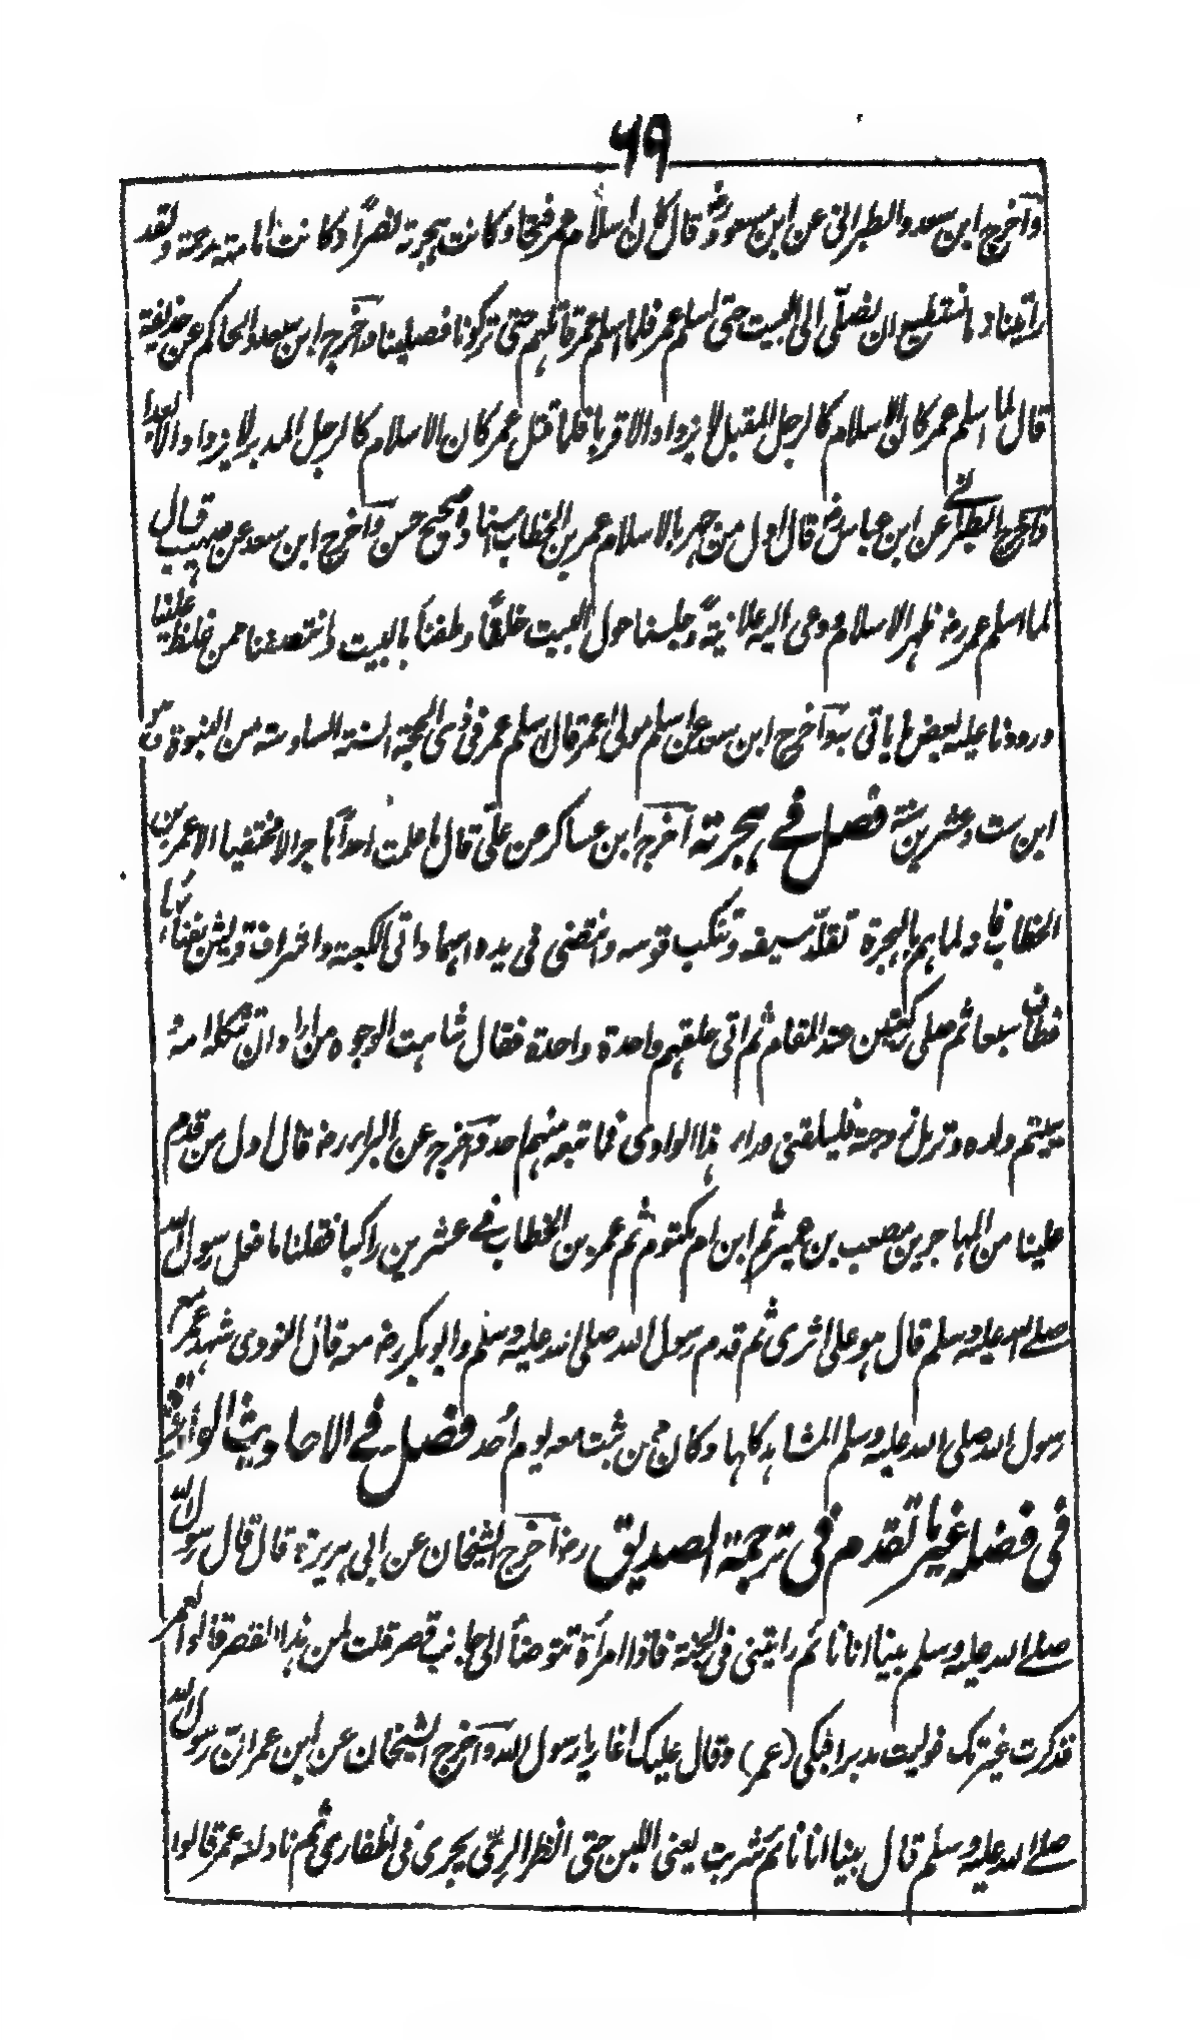 ٦٩
وآخرج ابن سعد والطبرانی عن ابن مسعود رض قال کان اسلام عمر فتحا وکانت ہجرتہ نصرًا وکانت امامتہ رحمۃ ولقد
رایتنا وما نستطیع ان نصلّی الی البیت حتی اسلم عمر فلما اسلم عمر قاتلہم حتی ترکونا فصلینا وآخرج ابن سعد والحاکم عن حذیفۃ
قال لما اسلم عمر کان الاسلام کالرجل المقبل لا یزداد الا قربا فلما قتل عمر کان الاسلام کالرجل المدبر لا یزداد الا بعدا
وآخرج الطبرانے عن ابن عباس رض قال اول من جہر بالاسلام عمر بن الخطاب اسنادہ صحیح حسن وآخرج ابن سعد عن صہیب قال
لما اسلم عمر رضہ ظہر الاسلام ودعی الیہ علانیۃً وجلسنا حول البیت حلقًا وطفنا بالبیت وانتصفنا ممن غلظ علینا
ورددنا علیہ بعض ما یاتی بہ وآخرج ابن سعد عن اسلم مولی عمر قال اسلم عمر فی ذی الحجۃ السنۃ السادسۃ من النبوۃ وہو
ابن ست وعشرین سنۃ فصل فے ہجرتہ آخرج ابن عساکر عن علی قال ما علمت احداً ہاجر الا مختفیا الا عمر بن
الخطاب فانہ لما ہم بالہجرۃ تقلّد سیفہ وتنکب قوسہ وانتضی فی یدہ اسہما واتی الکعبۃ واشراف قریش بفنائہا
فطاف سبعا ثم صلی رکعتین عند المقام ثم اتی حلقہم واحدۃ واحدۃ فقال شاہت الوجوہ من اراد ان تثکلہ امہ
وییتم ولدہ وترمل زوجتہ فلیلقنی وراء ہذا الوادی فما تبعہ منہم احد وآخرج عن البراء رضہ قال اول من قدم
علینا من المہاجرین مصعب بن عمیر ثم ابن ام مکتوم ثم عمر بن الخطاب فے عشرین راکبا فقلنا ما فعل رسول اللہ
صلے اللہ علیہ وسلم قال ہو علی اثری ثم قدم رسول اللہ صلی اللہ علیہ وسلم وابو بکر رضہ معہ قال النووی شہد عمر مع
رسول اللہ صلی اللہ علیہ وسلم المشاہد کلہا وکان ممن ثبت معہ یوم اُحد فصل فے الاحادیث الواردۃ
فی فضلہ غیر ما تقدم فی ترجمۃ الصدیق رضہ آخرج الشیخان عن ابی ہریرۃ قال قال رسول اللہ
صلے اللہ علیہ وسلم بینا انا نائم رایتنی فی الجنۃ فاذا امرأۃ تتوضأ الی جانب قصر قلت لمن ہذا القصر قالوا لعمر
فذکرت غیرتک فولیت مدبرا فبکی (عمر) وقال علیک اغار یا رسول اللہ وآخرج الشیخان عن ابن عمر ان رسول اللہ
صلے اللہ علیہ وسلم قال بینا انا نائم شربت یعنی اللبن حتی انظر الری یجری فی اظفاری ثم ناولتہ عمر قالوا